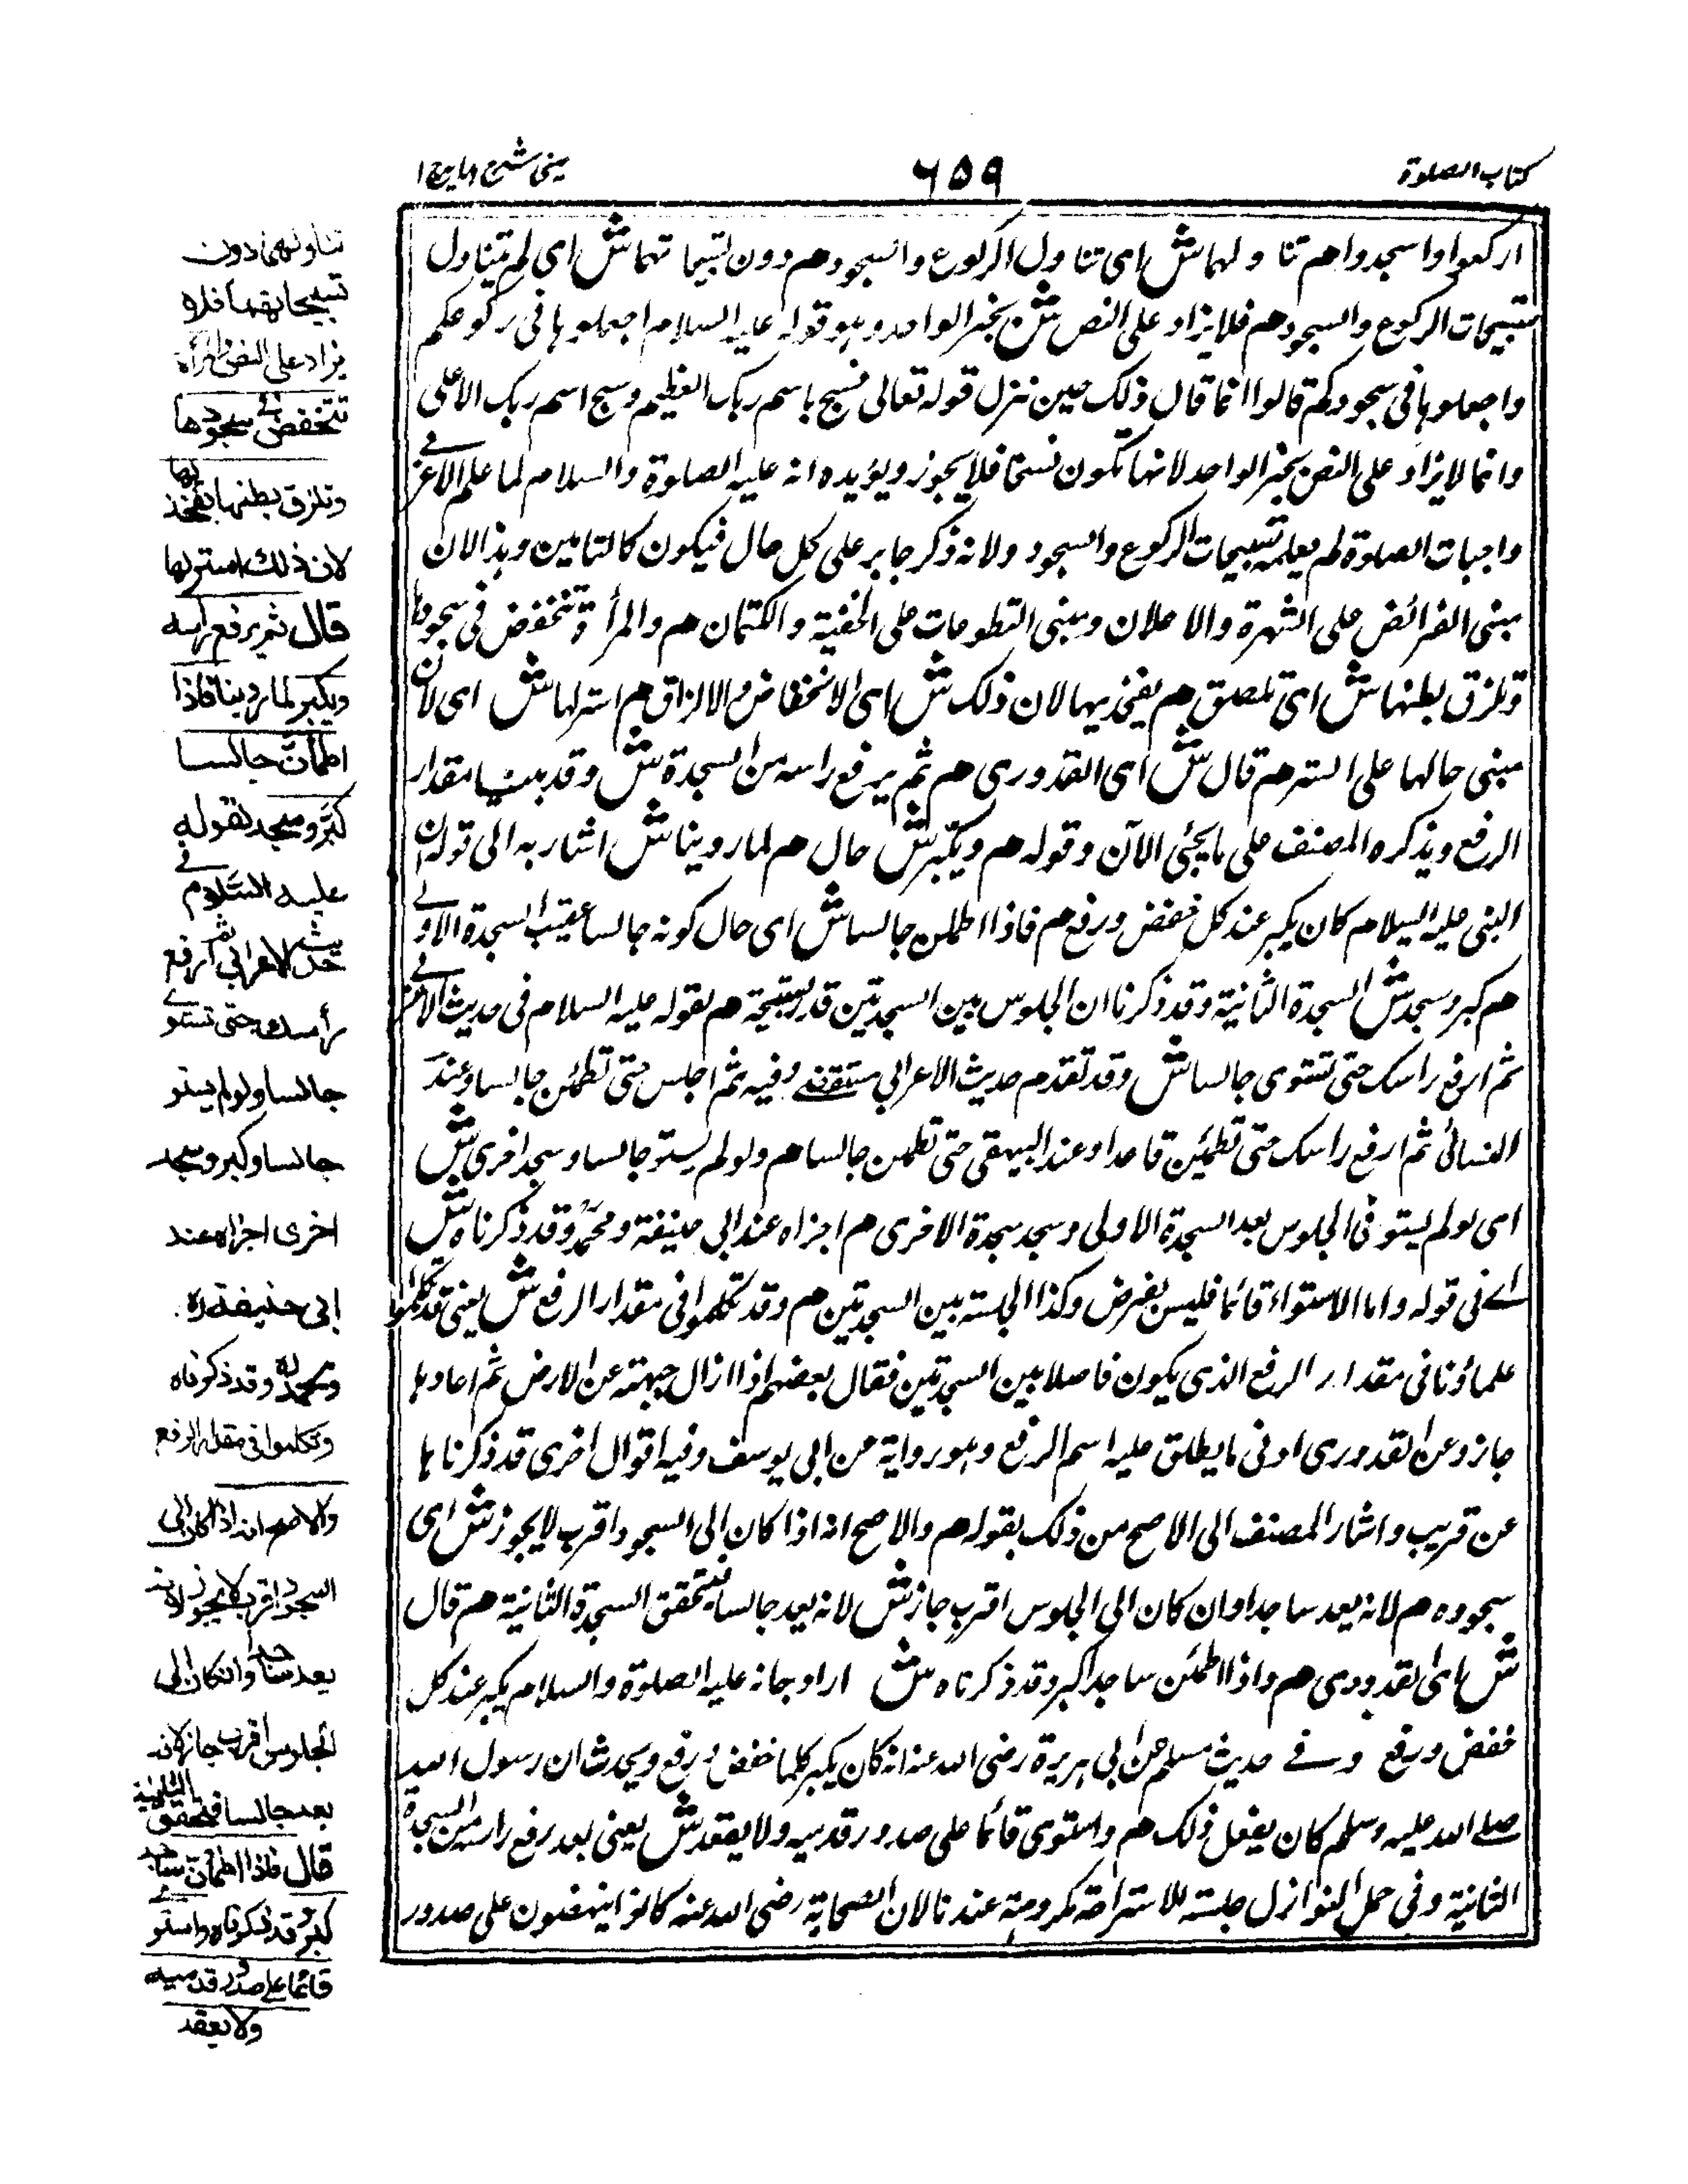 كتاب الصلوة
٦٥٩
عينى شرح هدايه ج ا
اركعوا واسجدوا هم تنا ولهما ش اى تناول الركوع والسجود هم دون تسبيحا تهما ش اى لم تتناول
تسبيحات الركوع والسجود هم فلا يزاد على النص ش بخبر الواحد وهو قوله عليه السلام اجعلوها فى ركوعكم
واجعلوها فى سجودكم قالوا انما قال ذلك حين نزل قوله تعالى فسبح باسم ربك العظيم وسبح اسم ربك الاعلى
وانما لا يزاد على النص بخبر الواحد لانها تكون نسخا فلا يجوز ويؤيده انه عليه الصلوة والسلام لما علم الاعرابى
واجبات الصلوة لم يعلمه تسبيحات الركوع والسجود ولانه ذكر جابر على كل حال فيكون كالتامين وهذا لان
مبنى الفرائض على الشهرة والاعلان ومبنى التطوعات على الخفية والكتمان هم والمرأة تنخفض فى سجودها
وتلزق بطنها ش اى تلصق هم بفخذيها لان ذلك ش اى الانخفاض والالزاق هم استر لها ش اى لان
مبنى حالها على الستر هم قال ش اى القدورى هم ثم يرفع راسه من السجدة ش وقد بينا مقدار
الرفع ويذكره المصنف على ما يجئى الآن وقوله هم ويكبر ش حال هم لما روينا ش اشار به الى قوله ان
النبى عليه السلام كان يكبر عند كل خفض ورفع هم فاذا اطمئن جالسا ش اى حال كونه جالسا عقيب السجدة الاولى
هم كبر وسجد ش السجدة الثانية وقد ذكرنا ان الجلوس بين السجدتين قدر تسبيحة هم لقوله عليه السلام فى حديث الاعرابى
ثم ارفع راسك حتى تستوى جالسا ش وقد تقدم حديث الاعرابى مستقصى وفيه ثم اجلس حتى تطمئن جالسا وعند
النسائى ثم ارفع راسك حتى تطمئن قاعدا وعند البيهقى حتى تطمئن جالسا هم ولو لم يستو جالسا وسجد اخرى ش
اى لو لم يستو فى الجلوس بعد السجدة الاولى وسجد سجدة الاخرى هم اجزاه عند ابى حنيفة ومحمد وقد ذكرناه ش
اے فى قوله واما الاستواء قائما فليس بفرض وكذا الجلسة بين السجدتين هم وقد تكلموا فى مقدار الرفع ش يعنى قد تكلموا
علماؤنا فى مقدار الرفع الذى يكون فاصلا بين السجدتين فقال بعضهم اذا ازال جبهته عن الارض ثم اعادها
جاز وعن القدورى ادنى ما يطلق عليه اسم الرفع وهو رواية عن ابى يوسف وفيه اقوال اخرى قد ذكرناها
عن قريب واشار المصنف الى الاصح من ذلك بقوله هم والاصح انه اذا كان الى السجود اقرب لا يجوز ش اى
سجوده هم لانه يعد ساجدا وان كان الى الجلوس اقرب جاز ش لانه يعد جالسا فيتحقق السجدة الثانية هم قال
ش اى القدورى هم واذا اطمئن ساجدا كبر وقد ذكرناه ش اراد به انه عليه الصلوة والسلام يكبر عند كل
خفض ورفع وفے حديث مسلم عن ابى هريرة رضى الله عنه انه كان يكبر كلما خفض ورفع ويحدث ان رسول الله
صلے الله عليه وسلم كان يفعل ذلك هم واستوى قائما على صدور قدميه ولا يقعد ش يعنى بعد رفع راسه من السجدة
الثانية وفى حمل النوازل جلسة للاستراحة مكروهة عندنا لان الصحابة رضى الله عنه كانوا ينهضون على صدور
تناولهما دون
تسبيحاتهما فلا
يزاد على النص والمرأة
تنخفض فے سجودها
وتلزق بطنها بفخذيها
لان ذلك استر لها
قال ثم يرفع راسه
ويكبر لما روينا فاذا
اطمأن جالسا
كبر وسجد لقوله
عليه السلام فے
حديث الاعرابى ثم ارفع
رأسك حتى تستوے
جالسا ولو لم يستو
جالسا وكبر وسجد
اخرى اجزاه عند
ابى حنيفة رح
ومحمد رح وقد ذكرناه
وتكلموا فى مقدار الرفع
والاصح انه اذا كان الى
السجود اقرب لا يجوز لانه
يعد ساجدا وان كان الى
الجلوس اقرب جاز لانه
يعد جالسا فتحقق الثانية
قال فاذا اطمأن ساجدا
كبر وقد ذكرناه واستوے
قائما على صدور قدميه
ولا يقعد